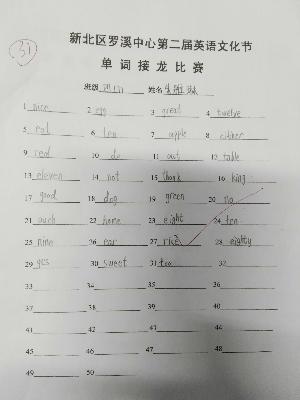 31
新北区罗溪中心第二届英语文化节
单词接龙比赛
班级 姓名
1 nice 2 egg 3 great 4 twelve
5 eat 6 ten 7 apple 8 either
9 red 10 do 11 out 12 table
13 eleven 14 not 15 thank 16 king
17 good 18 dog 19 green 20 no
21 ouch 22 home 23 eight 24 ten
25 nine 26 ear 27 rice 28 eighty
29 yes 30 sweet 31 too 32
33 34 35 36
37 38 39 40
41 42 43 44
45 46 47 48
49 50